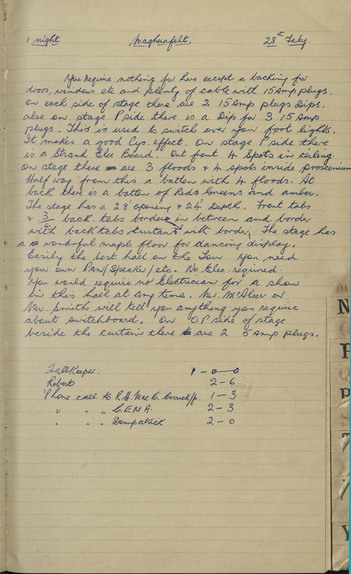 1 night Magherafelt. 28th Feby.
You require nothing for here except a backing for
doors, windows etc and plenty of cable with 15 Amp plugs.
on each side of stage there are 2 15 Amp plugs Dips.
also on stage P side there is a Dip for 3 15 Amp
plugs. This is used to switch over your foot lights.
It makes a good Cyc. effect. On stage P side there
is a Strand Elec Board. Out front 4 Spots in ceiling.
On stage there are 3 floods & 4 spots inside proscenium
Half way from this a batten with 4 floods. At
back there is a batten of Reds Greens and amber.
The stage has a 28' opening & 24' Depth. Front tabs
& 3 back tabs border in between and border
with back tabs & curtains with border. The stage has
a wonderful maple floor for dancing display.
Easily the best hall on the Tour. You need
your own Pan/Speaker/etc. No Elec required.
You would require no Electrician for a show
in this hall at any time. Mr. or
Mr. Smith will tell you anything you require
about switchboard. On O P side of stage
beside the curtain there are 2 5 Amp plugs.
Hall Keeper. 1-0-0
Robert 2-6
'Phone call to R.H. Mac C. 1-3
" " " C.E.M.A. 2-3
" " " Downpatrick 2-0
N
F
P